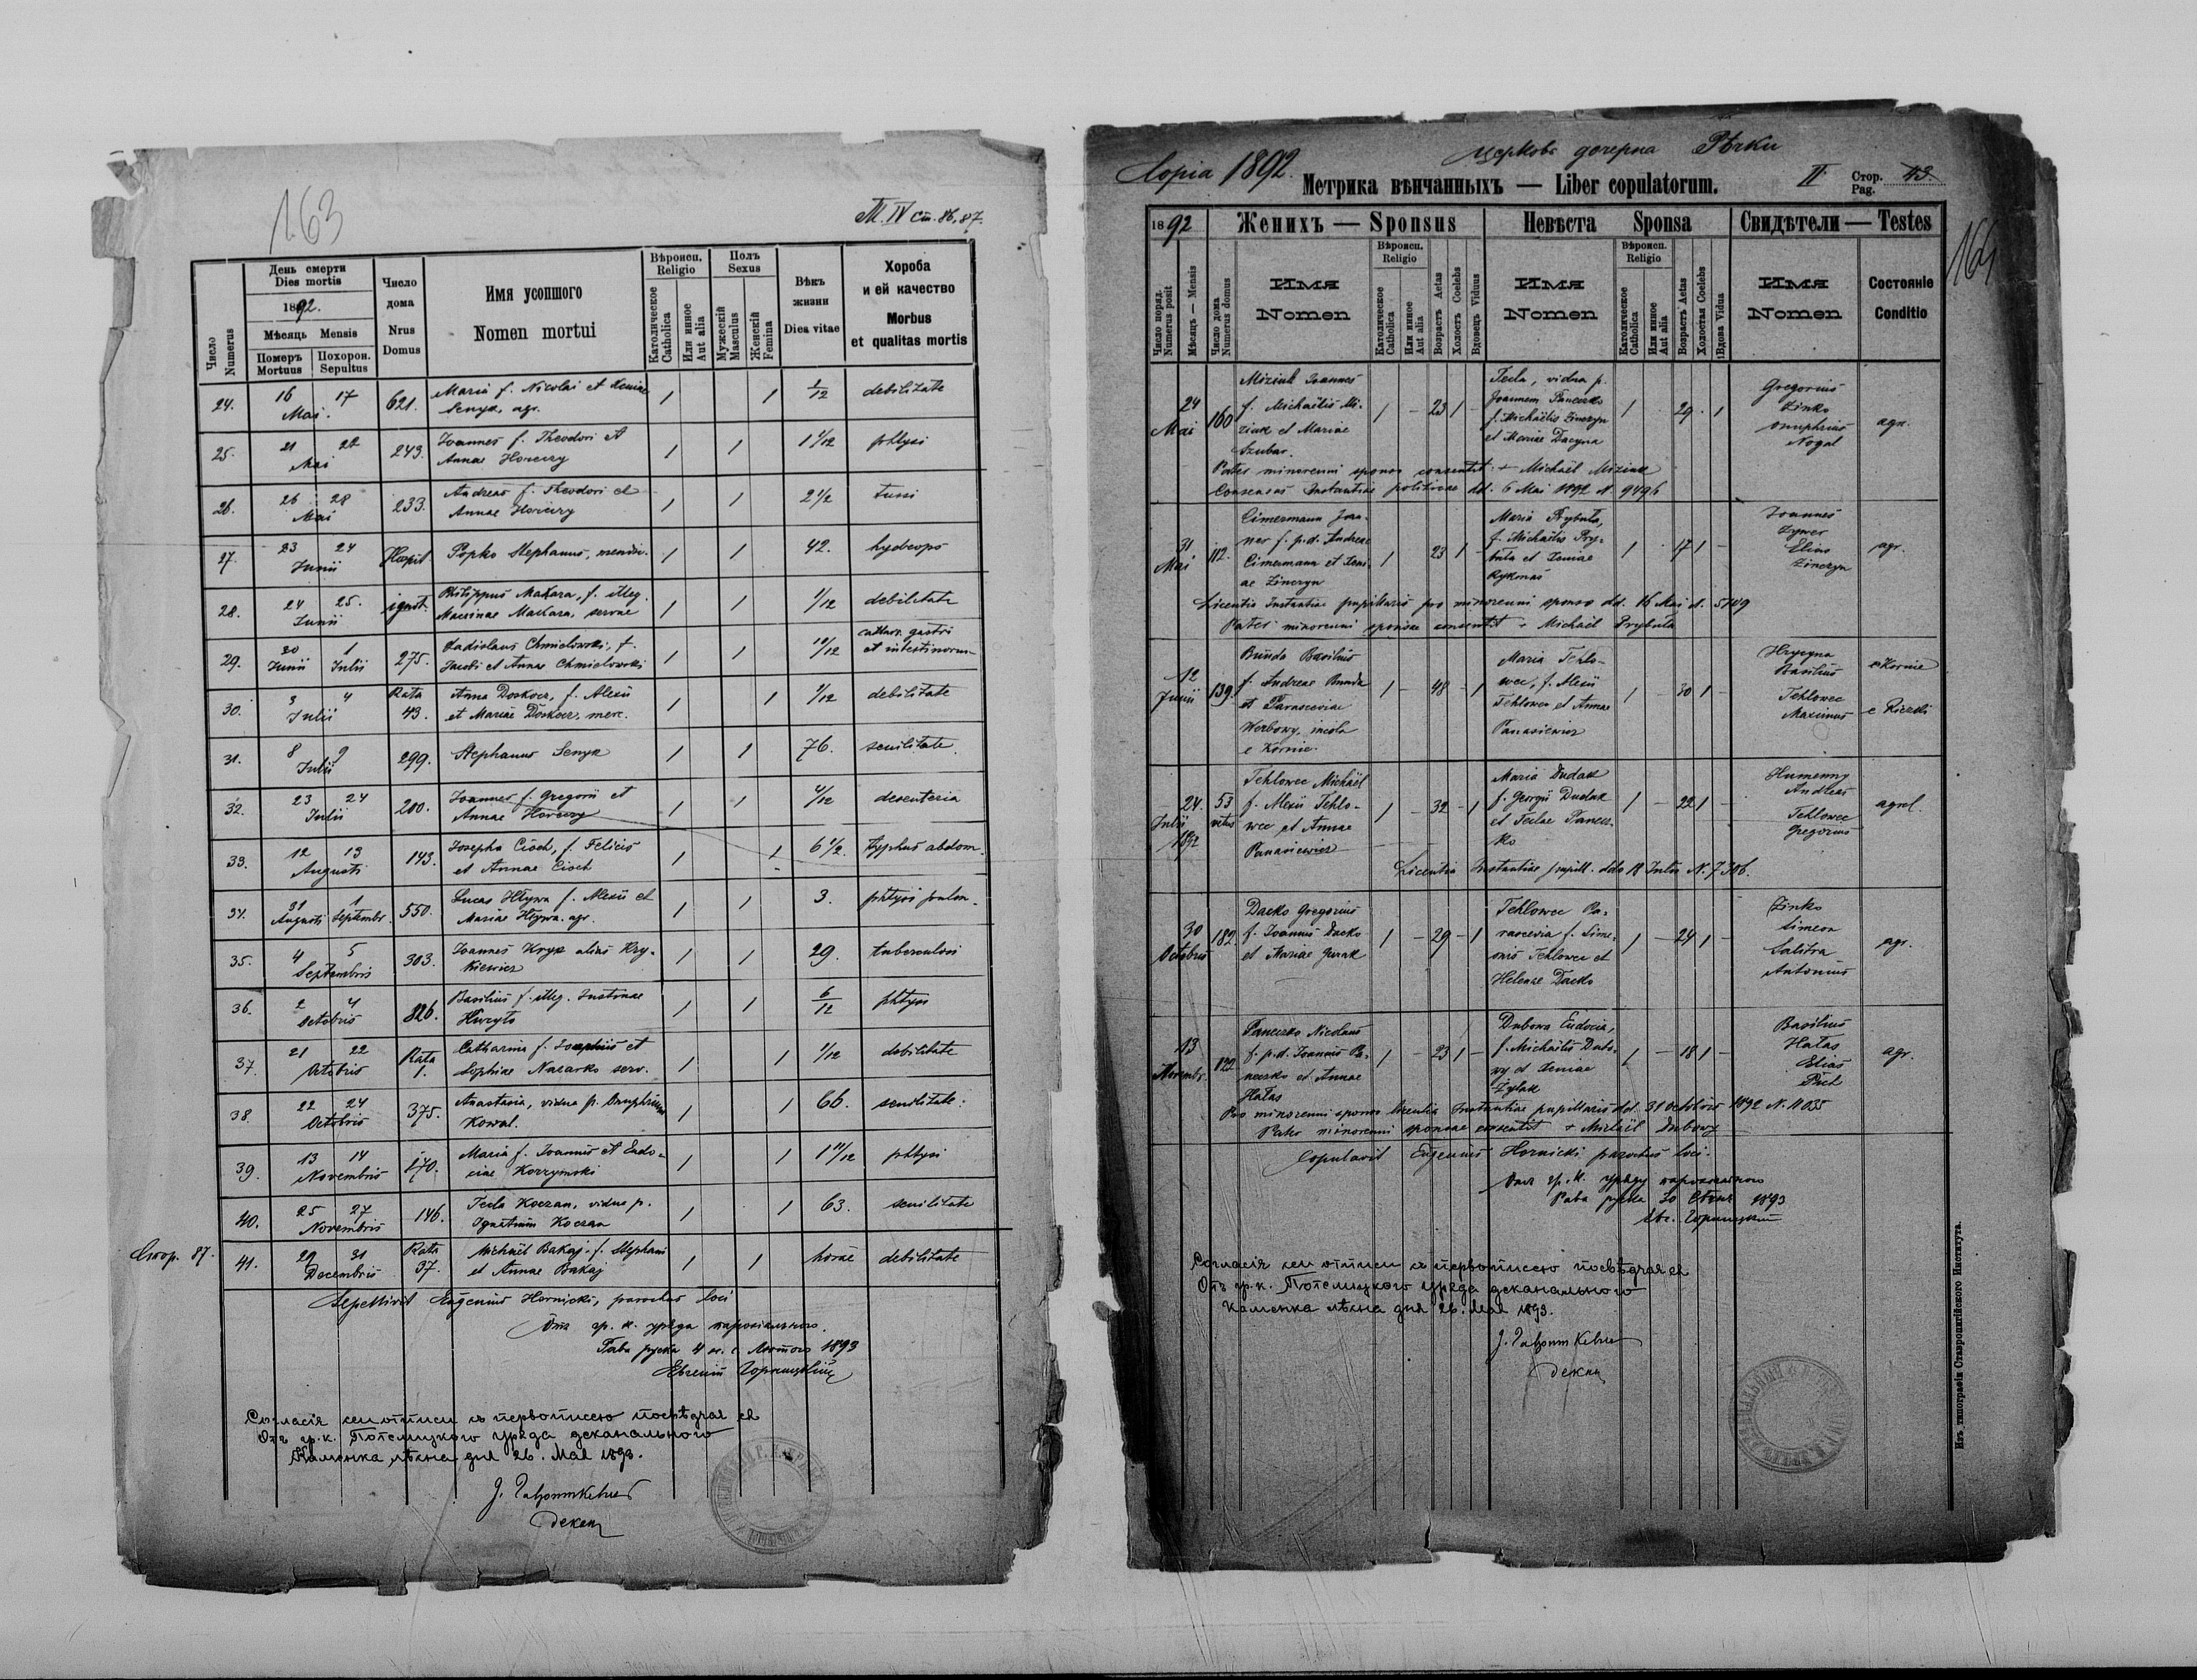 163
M. IV Ст. 86, 87.
Число Numerus
День смерти Dies mortis
1892.
Мѣсяць Mensis
Померъ Mortuus
Похорон. Sepultus
Число дома Nrus Domus
Имя усопшого
Nomen mortui
Вѣроисп. Religio
Католическое Catholica
Или инное Aut alia
Полъ Sexus
Мужескій Masculus
Женскій Femina
Вѣкъ жизни Dies vitae
Хороба и ей качество
Morbus et qualitas mortis
24. 16 17 Mai. 621. Maria f. Nicolai et Xeniae
Senyk, agr. 1 1 1/12 debilitate
25. 21 22 Mai 243. Joannes f. Theodori et
Annae Horecry 1 1 1 1/12 phtysi
26. 26 28 Mai 233. Andreas f. Theodori et
Annae Horecry 1 1 2 1/2 tussi
27. 23 24 Junii Hospit Popko Stephanus, mendic. 1 1 42. hydrops
28. 24 25. Junii ignot. Philippus Makara, f. illeg.
Macrinae Makara, servae 1 1 1/12 debilitate
29. 30 Junii 1 Julii 275. Ladislaus Chmielowski, f.
Jacobi et Annae Chmielowski 1 1 10/12 cathar. gastri
et intestinorum
30. 3 4 Julii Rata 43. Anna Doskocz, f. Alexii
et Mariae Doskocz, merc. 1 1 1/12 debilitate
31. 8 9 Julii 299. Stephanus Senyk 1 1 76. senilitate.
32. 23 24 Julii 200. Joannes f. Gregorii et
Annae Horecry 1 1 4/12 desenteria
33. 12 13 Augusti 143. Josepha Cioch, f. Felicis
et Annae Cioch 1 1 6 1/2. typhus abdom.
34. 31 Augusti 1 Septembr. 550. Lucas Hlywa f. Alexii et
Mariae Hlywa. agr. 1 1 3. phtysi pulm.
35. 4 5 Septembris 303. Joannes Kryk alias Kry-
kiewicz 1 1 29. tuberculosi
36. 2 4 Octobris 826. Basilius f. illeg. Justinae
1 1 6/12 phtysi
37. 21 22 Octobris Rata 1. Catharina f. Josephi et
Sophiae Nazarko serv. 1 1 1/12 debilitate
38. 22 24 Octobris 375. Anastasia, vidua p. Onuphrium
Kowal. 1 1 66. senilitate.
39. 13 14 Novembris 170. Maria f. Joannis et Eudo-
ciae Korzynski 1 1 1 11/12 phtysi
40. 25 27 Novembris 146. Tecla Koczan, vidua p.
Ignatium Koczan 1 1 63. senilitate
Стор. 87. 41. 29 31 Decembris Rata 37. Michael Bakaj f. Stephani
et Annae Bakaj 1 1 horae debilitate
Sepelivit Eugenius Hornicki, parochus loci
Отъ гр. к. уряда парохіяльного.
Рава руска 4 н. с. Лютого 1893
Евгеній Горницкій
Согласіе сеи отписи съ первописею посвѣдчаєся
Отъ гр. к. Потелицкого уряда деканального
Каменка лѣсна дня 26. Мая 1893.
декан
Copia 1892.
Церковь дочерна Рѣчки
Метрика вѣнчанныхъ — Liber copulatorum.
II Стор. Pag. 43.
164
1892
Женихъ — Sponsus
Невѣста Sponsa
Свидѣтели — Testes
Число поряд. Numerus posit
Мѣсяць — Mensis
Число дома Numerus domus
Имя Nomen
Вѣроисп. Religio
Католическое Catholica
Или инное Aut alia
Возрастъ Aetas
Холостъ Coelebs
Вдовець Viduus
Имя Nomen
Вѣроисп. Religio
Католическое Catholica
Или инное Aut alia
Возрастъ Aetas
Холостая Coelebs
Вдова Vidua
Имя Nomen
Состояніе Conditio
24 Mai 160 Miziuk Joannes
f. Michaelis Mi-
ziuk et Mariae
Szubar. 1 – 23 1 –
Tecla, vidua p.
Joannem Paneczko
f. Michaelis Zinczyn
et Mariae Dacyna 1 29. 1
Gregorius
Zinko
Onuphrius
Nogal
agr.
Pater minorenni sponso consentit + Michael Miziuk
Consensus Instantiae politicae dd. 6 Mai 1892 N. 9496
31 Mai 112. Cimermann Joan-
nes f. p.d. Andreae
Cimermann et Xeni-
ae Zinczyn 1 23 1
Maria Prybuła,
f. Michaelis Pry-
buła et Xeniae
Rykmas 1 17 1 –
Joannes
Zywer
Elias
Zinczyn
agr.
Licentia Instantiae pupillaris pro minorenni sponso dd. 16 Mai N. 5709
Pater minorenni sponsae consentit + Michael Prybuła
12 Junii 139. Bunda Basilius
f. Andreae Bunda
et Parasceviae
Werbowy, incola
e Kornie. 1 – 48 – 1
Maria Tehlo-
wec, f. Alexii
Tehlowec et Annae
Panasiewicz 1 – 30 1 –
Hrycyna
Basilius
Tehlowec
Maximus
e Kornie
e Riczki
24. Julii 1892 53 vetus Tehlowec Michael
f. Alexii Tehlo-
wec et Annae
Panasiewicz 1 – 32 – 1
Maria Dudak
f. Georgii Dudak
et Teclae Panecz-
ko 1 – 22 1 –
Humenny
Andreas
Tehlowec
Gregorius
agricol.
Licentia Instantiae pupill. ddo 18 Julii N. 7306.
30 Octobris 182. Dacko Gregorius
f. Joannis Dacko
et Mariae Jurak 1 – 29 – 1
Tehlowec Pa-
rascevia f. Sime-
onis Tehlowec et
Helenae Dacko 1 – 24 1 –
Zinko
Simeon
Salitra
Antonius
agr.
13 Novembr. 122 Paneczko Nicolaus
f. p.d. Joannis Pa-
neczko et Annae
Hałas 1 – 23 1 –
Dubowa Eudocia,
f. Michaelis Dubo-
wy et Xeniae
Żyłak 1 – 18 1 –
Basilius
Hałas
Elias
Pich
agr.
Pro minorenni sponso licentia Instantiae pupillaris dd. 31 Octobris 1892 N. 11035
Pater minorenni sponsae consentit + Michael Dubowy
Copulavit Eugenius Hornicki parochus loci.
Отъ гр. к. уряду парохіяльного
Рава руска 1893
Евг. Горницкій
Согласіе сеи отписи съ первописею посвѣдчаєся
Отъ гр. к. Потелицкого уряда деканального
Каменка лѣсна дня 26. Мая 1893.
декан
Изъ типографіи Ставропигійского Института.